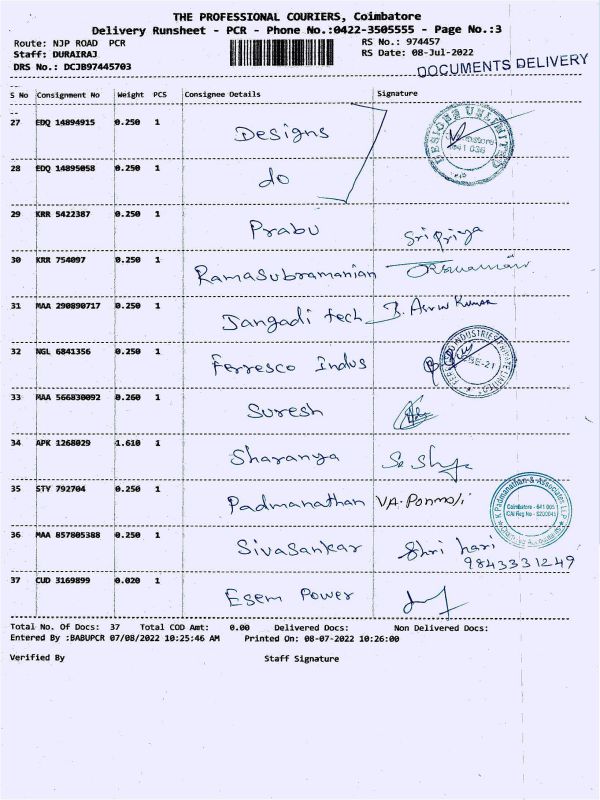 THE PROFESSIONAL COURIERS, Coimbatore
Delivery Runsheet - PCR - Phone No.:0422-3505555 - Page No.:3
Route: NJP ROAD PCR RS No.: 974457
Staff: DURAIRAJ RS Date: 08-Jul-2022
DRS No.: DCJB97445703
DOCUMENTS DELIVERY
S No Consignment No Weight PCS Consignee Details Signature
27 EDQ 14894915 0.250 1 Designs
28 EDQ 14895058 0.250 1 do
29 KRR 5422387 0.250 1 Prabu Sripriya
30 KRR 754097 0.250 1 Ramasubramanian
31 MAA 290890717 0.250 1 Jangadi tech B. Aswin Kumar
32 NGL 6841356 0.250 1 Ferresco Indus
33 MAA 566830092 0.260 1 Suresh
34 APK 1268029 1.610 1 Sharanya
35 STY 792704 0.250 1 Padmanathan VA. Ponmoli
K Padmanathan & Associates LLP
Coimbatore - 641 005
Chartered Accountants
36 MAA 857805388 0.250 1 SivaSankar Shri hari
9843331249
37 CUD 3169899 0.020 1 Esem Power
Total No. Of Docs: 37 Total COD Amt: 0.00 Delivered Docs: Non Delivered Docs:
Entered By :BABUPCR 07/08/2022 10:25:46 AM Printed On: 08-07-2022 10:26:00
Verified By Staff Signature